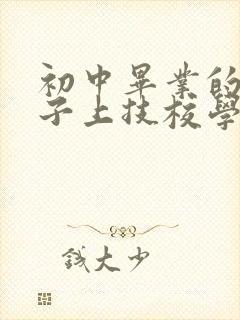 初中畢業的
子上技校學
錢大少